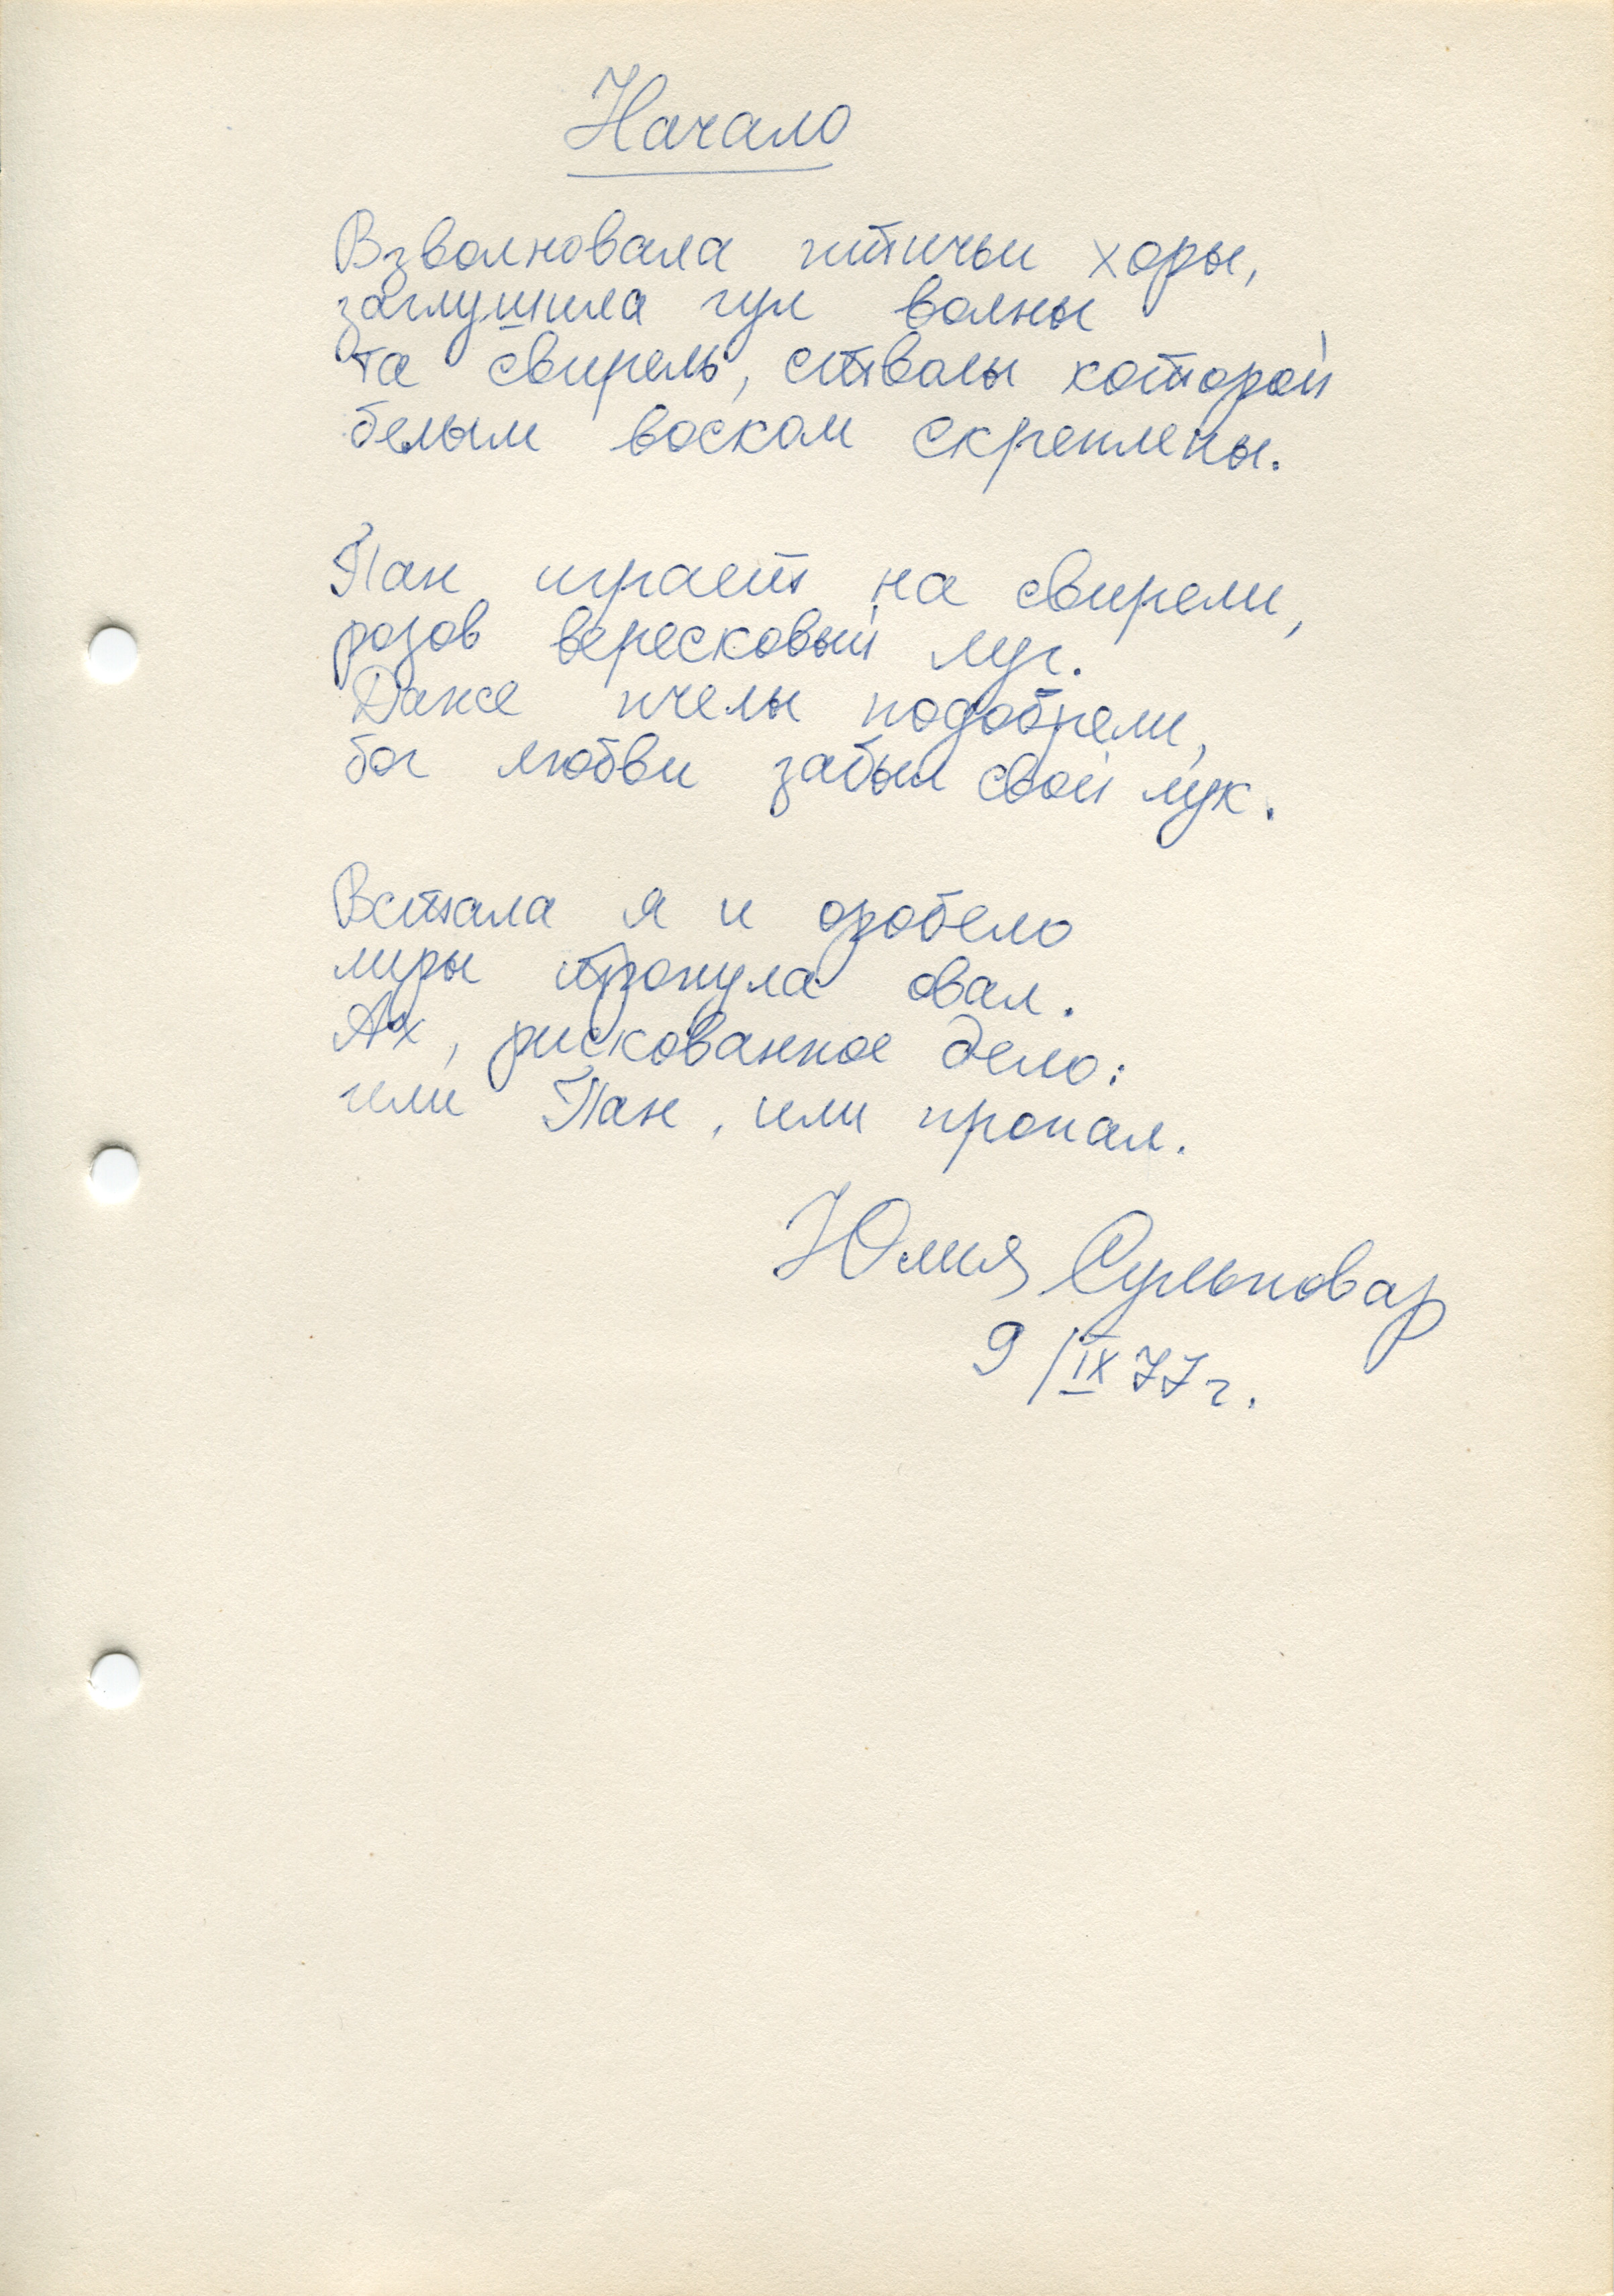 Начало
Взволновала птичьи хоры,
заглушила гул волны
та свирель, стволы которой
белым воском скреплены.
Пан играет на свирели,
розов вересковый луг.
Даже пчелы подобрели,
бог любви забыл свой лук.
Встала я и оробело
лиры тронула овал.
Ах, рискованное дело:
или Пан, или пропал.
Юлия Сульповар
9/IX 77 г.